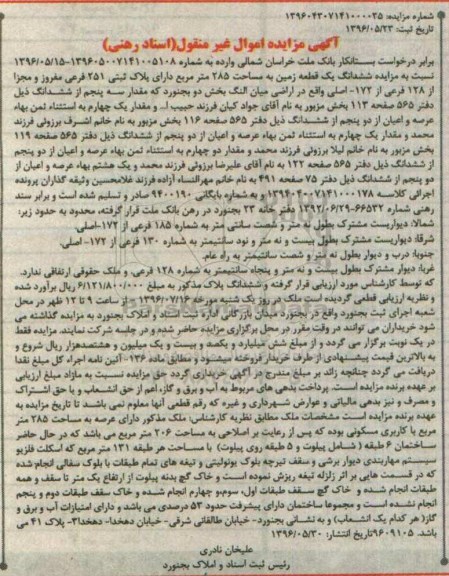 شماره مزایده: ۱۳۹۶۰۴۳۰۷۱۴۱۰۰۰۰۳۵
تاریخ ثبت: ۱۳۹۶/۰۵/۲۳
آگهی مزایده اموال غیر منقول(اسناد رهنی)
برابر درخواست بستانکار بانک ملت خراسان شمالی وارده به شماره ۱۳۹۶۰۵۰۰۷۱۴۱۰۰۵۱۰۸-۱۳۹۶/۰۵/۱۵
نسبت به مزایده ششدانگ یک قطعه زمین به مساحت ۲۸۵ متر مربع دارای پلاک ثبتی ۲۵۱ فرعی مفروز و مجزا
از ۱۲۸ فرعی از ۱۷۲- اصلی واقع در اراضی میان النگ بخش دو بجنورد که مقدار سه پنجم از ششدانگ ذیل
دفتر ۵۶۵ صفحه ۱۱۳ بخش مزبور به نام آقای جواد کیان فرزند حبیب ا... و مقدار یک چهارم به استثناء ثمن بهاء
عرصه و اعیان از دو پنجم از ششدانگ ذیل دفتر ۵۶۵ صفحه ۱۱۶ بخش مزبور به نام خانم اشرف برزوئی فرزند
محمد و مقدار یک چهارم به استثناء ثمن بهاء عرصه و اعیان از دو پنجم از ششدانگ ذیل دفتر ۵۶۵ صفحه ۱۱۹
بخش مزبور به نام خانم لیلا برزوئی فرزند محمد و مقدار دو چهارم به استثناء ثمن بهاء عرصه و اعیان از دو پنجم
از ششدانگ ذیل دفتر ۵۶۵ صفحه ۱۲۲ به نام آقای علیرضا برزوئی فرزند محمد و یک هشتم بهاء عرصه و اعیان از
دو پنجم از ششدانگ ذیل دفتر ۷۵ صفحه ۴۹۱ به نام خانم مهرالنساء آزاده فرزند غلامحسین وثیقه گذاران پرونده
اجرائی کلاسه ۱۳۹۴۰۴۰۰۷۱۴۱۰۰۰۱۷۸ و به شماره بایگانی ۹۴۰۰۱۹۰ صادر و تسلیم شده است و برابر سند
رهنی شماره ۶۶۵۳۲-۱۳۹۲/۰۶/۲۹ دفتر خانه ۲۳ بجنورد در رهن بانک ملت قرار گرفته، محدود به حدود زیر:
شمالا: دیواریست مشترک بطول نه متر و شصت سانتی متر به شماره ۱۸۵ فرعی از ۱۷۲-اصلی.
شرقا: دیواریست مشترک بطول بیست و نه متر و نود سانتیمتر به شماره ۱۳۰ فرعی از ۱۷۲- اصلی.
جنوبا: درب و دیوار بطول نه متر و شصت سانتیمتر به راه عام.
غربا: دیوار مشترک بطول بیست و نه متر و پنجاه سانتیمتر به شماره ۱۲۸ فرعی، و ملک حقوقی ارتفاقی ندارد.
که توسط کارشناس مورد ارزیابی قرار گرفته و ششدانگ پلاک مذکور به مبلغ ۶/۱۲۱/۸۰۰/۰۰۰ ریال برآورد شده
و نظریه ارزیابی قطعی گردیده است ملک در روز یک شنبه مورخه ۱۳۹۶/۰۷/۱۶ از ساعت ۹ تا ۱۲ ظهر در محل
شعبه اجرای ثبت بجنورد واقع در بجنورد میدان بازرگانی اداره ثبت اسناد و املاک بجنورد به مزایده گذاشته می
شود خریداران می توانند در وقت مقرر در محل برگزاری مزایده حاضر شده و در جلسه شرکت نمایند. مزایده فقط
در یک نوبت برگزار می گردد و از مبلغ شش میلیارد و یکصد و بیست و یک میلیون و هشتصدهزار ریال شروع و
به بالاترین قیمت پیشنهادی از طرف خریدار فروخته میشود و مطابق ماده ۱۳۶- آئین نامه اجراء کل مبلغ نقدا
دریافت می گردد چنانچه زائد بر مبلغ مندرج در آگهی خریداری گردد حق مزایده نسبت به مازاد مبلغ ارزیابی
بر عهده برنده مزایده است. پرداخت بدهی های مربوط به آب و برق و گاز، اعم از حق انشعاب و یا حق اشتراک
و مصرف و نیز بدهی مالیاتی و عوارض شهرداری و غیره که رقم قطعی آنها معلوم نمی باشد تا تاریخ مزایده به
عهده برنده مزایده است مشخصات ملک مطابق نظریه کارشناس: ملک مذکور دارای عرصه به مساحت ۲۸۵ متر
مربع با کاربری مسکونی بوده که پس از رعایت بر اصلاحی به مساحت ۲۰۶ متر مربع می باشد که در حال حاضر
ساختمان ۶ طبقه ( شامل پیلوت و ۵ طبقه روی پیلوت) با مساحت هر طبقه ۱۳۱ متر مربع که اسکلت فلزی
سیستم مهاربندی دیوار برشی و سقف تیرچه بلوک یونولیتی و تیغه های تمام طبقات با بلوک سفالی انجام شده
که در قسمت هایی بر اثر زلزله تیغه ریزش نموده است و خاک گچ بدنه پیلوت از ارتفاع یک متر تا سقف و همه
طبقات انجام شده و خاک گچ سقف طبقات اول، سوم و چهارم انجام شده و خاک سقف طبقات دوم و پنجم
انجام نشده است و مجموعا ساختمان دارای پیشرفت حدود ۵۳ درصدی می باشد و دارای امتیازات آب و برق و
گاز( هر کدام یک انشعاب) و به نشانی بجنورد- خیابان طالقانی شرقی- خیابان دهخدا- دهخدا۳- پلاک ۴۱ می
باشد. ۹۶۰۹۱۰۵تاریخ انتشار: ۱۳۹۶/۰۵/۳۰
علیخان نادری
رئیس ثبت اسناد و املاک بجنورد